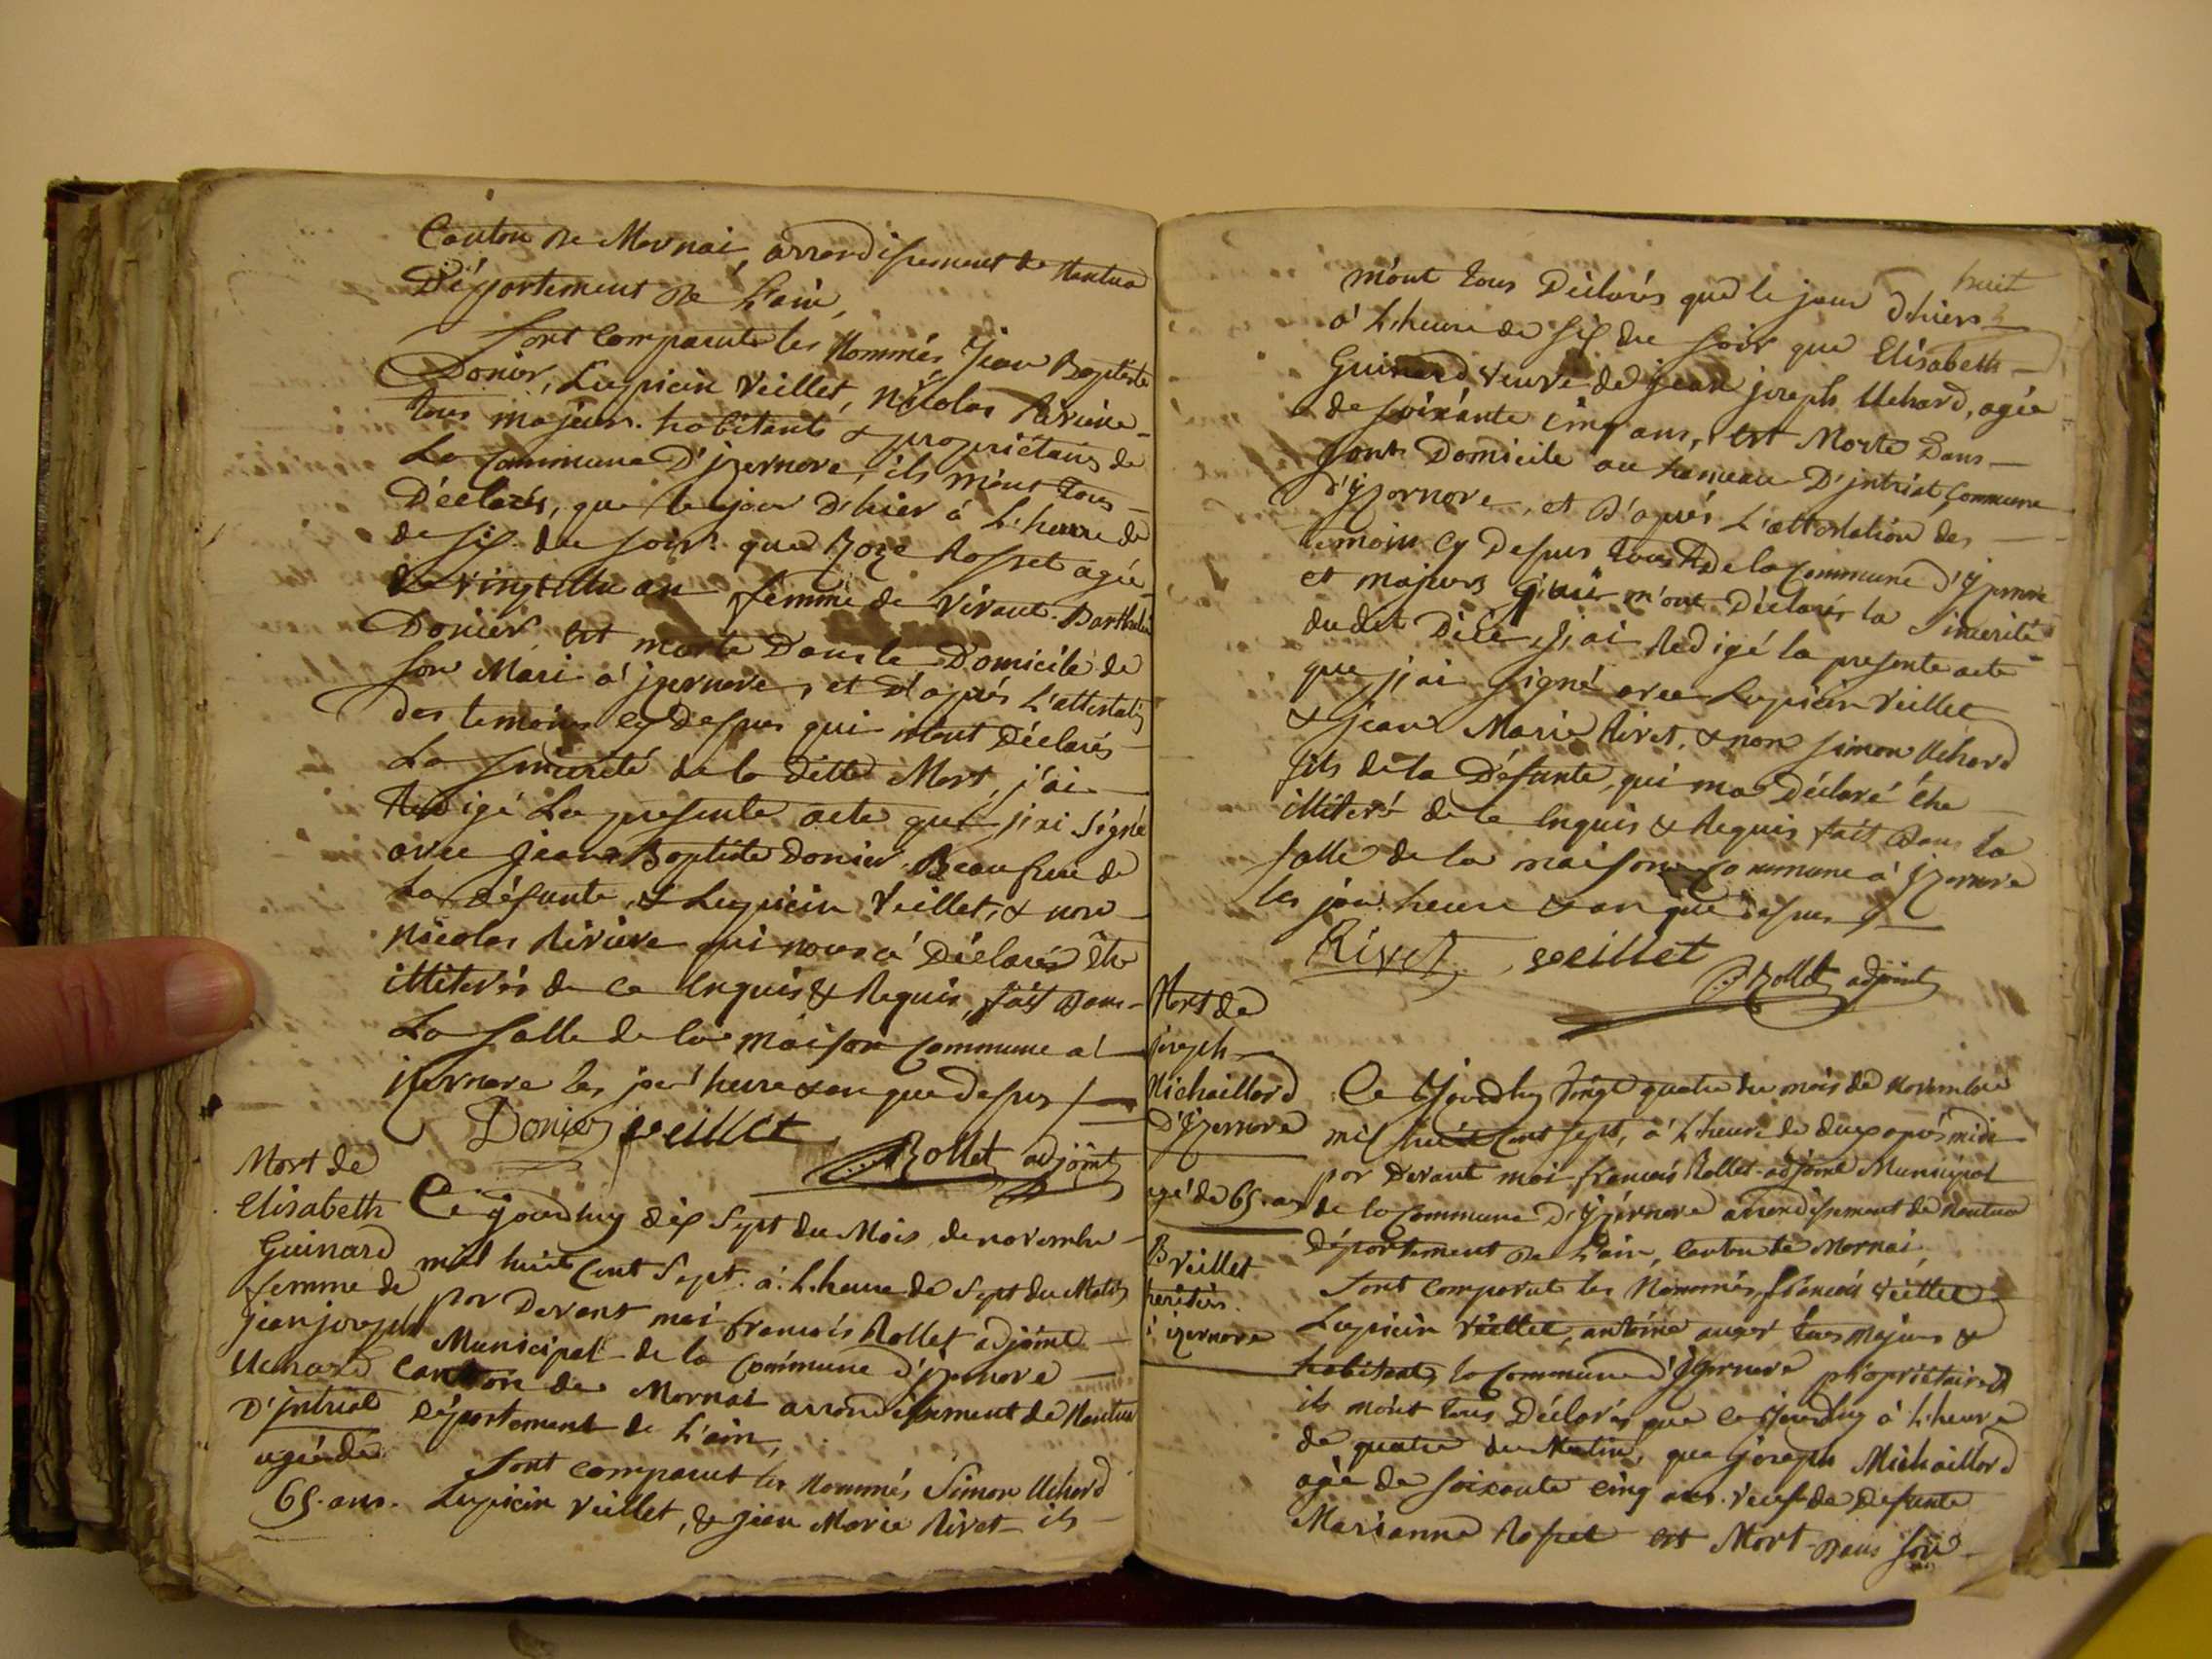 Canton de Mornai, arrondissement de Nantua
Département de L'ain,
Sont comparute les Nommés Jean Baptiste
Donier, Lupicin Veillet, Nicolas Rivière
tous majeurs habitants & propriétaires de
La Commune D'jzernore, ils m'ont tous
Déclarés, que le jour D'hier à L'heure de
de six du soir que Roze Rosset agée
de vingt un an femme de vivant Barthele
Donier est morte Dans le Domicile de
son Mari à jzernore, et d'après L'attestatio
des temoins cy Dessus qui m'ont Déclarés
La sincerité de la ditte Mort, j'ai
Redigé La presente acte que j'ai signé
avec Jean Baptiste Donier Beaufrere de
La défunte, & Lupicin Veillet, & non
Nicolas Rivière qui nous à Déclarés être
illiterés de ce Enquis & Requis, fait Dans
La salle de la maison commune a
jzernore les jour heure & an que dessus
Donier veillet
Rollet adjoint
Mort de
Elisabeth
Guinard
femme de
jean joseph
Uchard
D'jntriat
agée de
65. ans.
Ce jourdhuy dix sept du Mois de novembre
mil huit cent Sept. à L'heure de Sept du Matin
par Devant moi francois Rollet adjoint
Municipal de la Commune d'jzernore
Canton de Mornai arrondissement de Nantua
Département de L'ain,
Sont comparut les Nommés Simon Uchard
Lupicin Veillet, & Jean Marie Rivet ils
huit
m'ont tous Déclarés que le jour d'hiers
à L'heure de six du soir que Elisabeth
Guinard veuve de jean joseph Uchard, agée
de soixante cinq ans, est Morte Dans
sont Domicile au hameau D'jntriat Commune
d'Yzernore, et D'après L'attestation des
temoin cy Dessus tous De la Commune d'Yzernore
et majeurs qui m'ont Déclarés la sincerité
dudit Décè, j'ai Redigé la presente acte
que j'ai signé avec Lupicin Veillet
& jean Marie Rivet, & non simon Uchard
fils de la Défunte, qui ma Déclaré être
illiteré de ce Enquis & Requis fait Dans la
salle de la maison commune à jzernore
les jour heure & an que dessus
Rivet veillet
Rollet adjoint
Mort de
joseph
Michaillard
D'Yzernore
agé de 65. an
B Veillet
heritiers
à izernore
Ce Ejourdhuy vingt quatre du mois de Novembre
mil huit Cent sept, à L'heure de deux après midi
par Devant moi francois Rollet adjoint Municipal
de la Commune D'Yzernore arrondissement de Nantua
Département de L'ain, Canton de Mornai,
Sont comparut les Nommés francois Veillet
Lupicin Veillet, antoine auger tous Majeurs &
habitant, la Commune d'Yzernore propriétaires
ils m'ont tous Déclarés que cejourdhuy à L'heure
de quatre du Matin, que joseph Michaillard
agé de soixante cinq ans. veuf de Defunte
Marianne Rosset est Mort Dans son